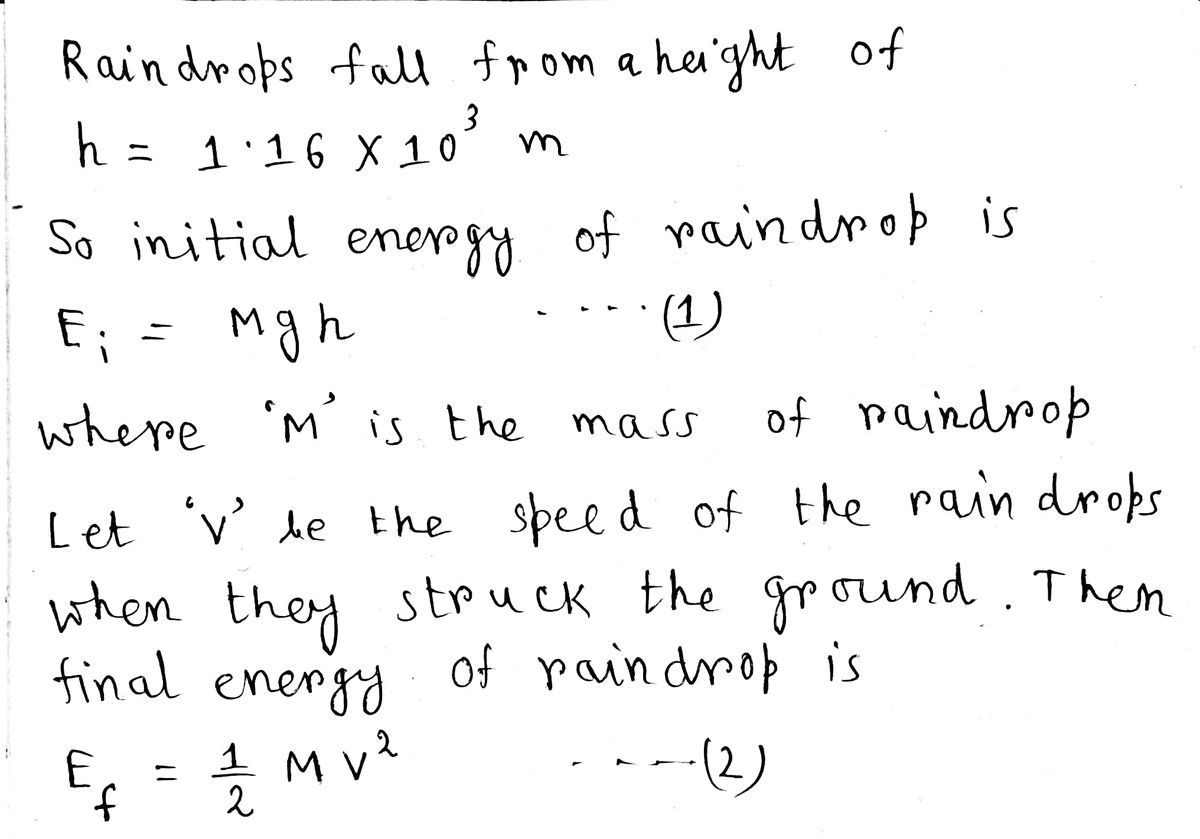 Raindrops fall from a height of
h = 1·16 X 10³ m
So initial energy of raindrop is
Eᵢ = Mgh ----·(1)
where 'M' is the mass of raindrop
Let 'v' be the speed of the rain drops
when they struck the ground. Then
final energy of raindrop is
E_f = 1/2 M v² ----(2)